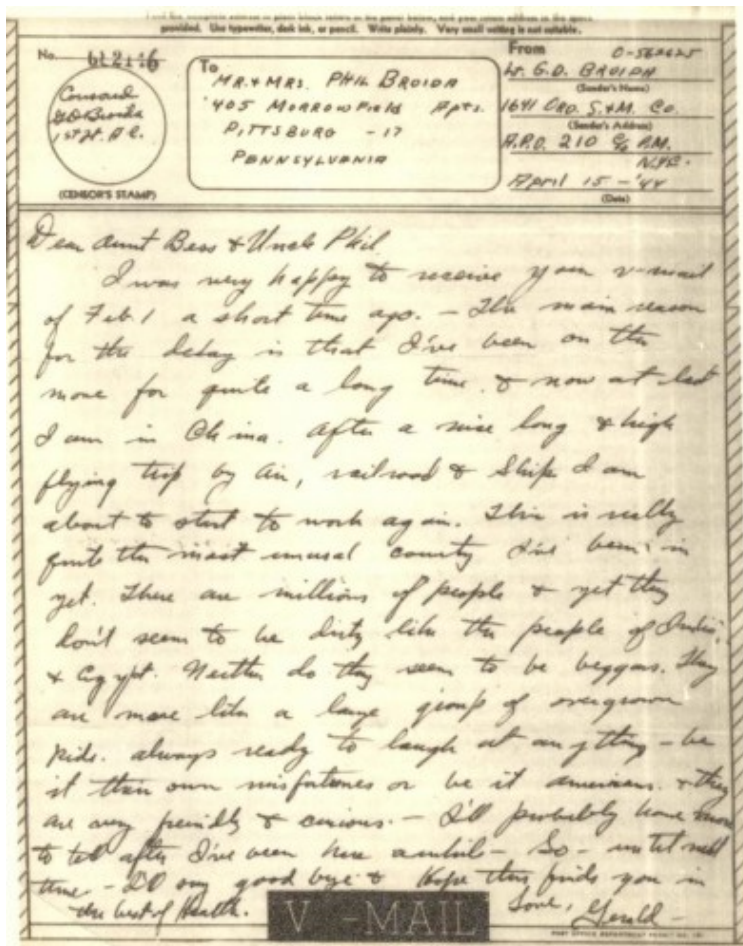 Print the complete address in plain block letters in the panel below, and your return address in the space
provided. Use typewriter, dark ink, or pencil. Write plainly. Very small writing is not suitable.
No.
(CENSOR'S STAMP)
To
MR. & MRS. PHIL BROIDA
405 MORROWFIELD APTS.
PITTSBURG -17
PENNSYLVANIA
From O-562625
LT. G.D. BROIDA
(Sender's Name)
1641 ORD. S.&M. CO.
(Sender's Address)
A.P.O. 210 C/O P.M.
N.Y.C.
April 15 - '44
(Date)
Dear Aunt Bess & Uncle Phil,
I was very happy to receive your v-mail
of Feb. 1 a short time ago. - The main reason
for the delay is that I've been on the
move for quite a long time. & now at last
I am in China. After a nice long & high
flying trip by air, railroad & ship I am
about to start to work again. This is really
quite the most unusal country I've been in
yet. There are millions of people & yet they
don't seem to be dirty like the people of India,
& Egypt. Neither do they seem to be beggars. They
are more like a large group of overgrown
kids. always ready to laugh at anything - be
it their own misfortunes or be it americans. & they
are very friendly & curious. - I'll probably have more
to tell after I've been here awhile - So - until next
time - I'll say good bye & Hope this finds you in
the best of Health.
Love, Gerald -
V - MAIL
POST OFFICE DEPARTMENT PERMIT NO.